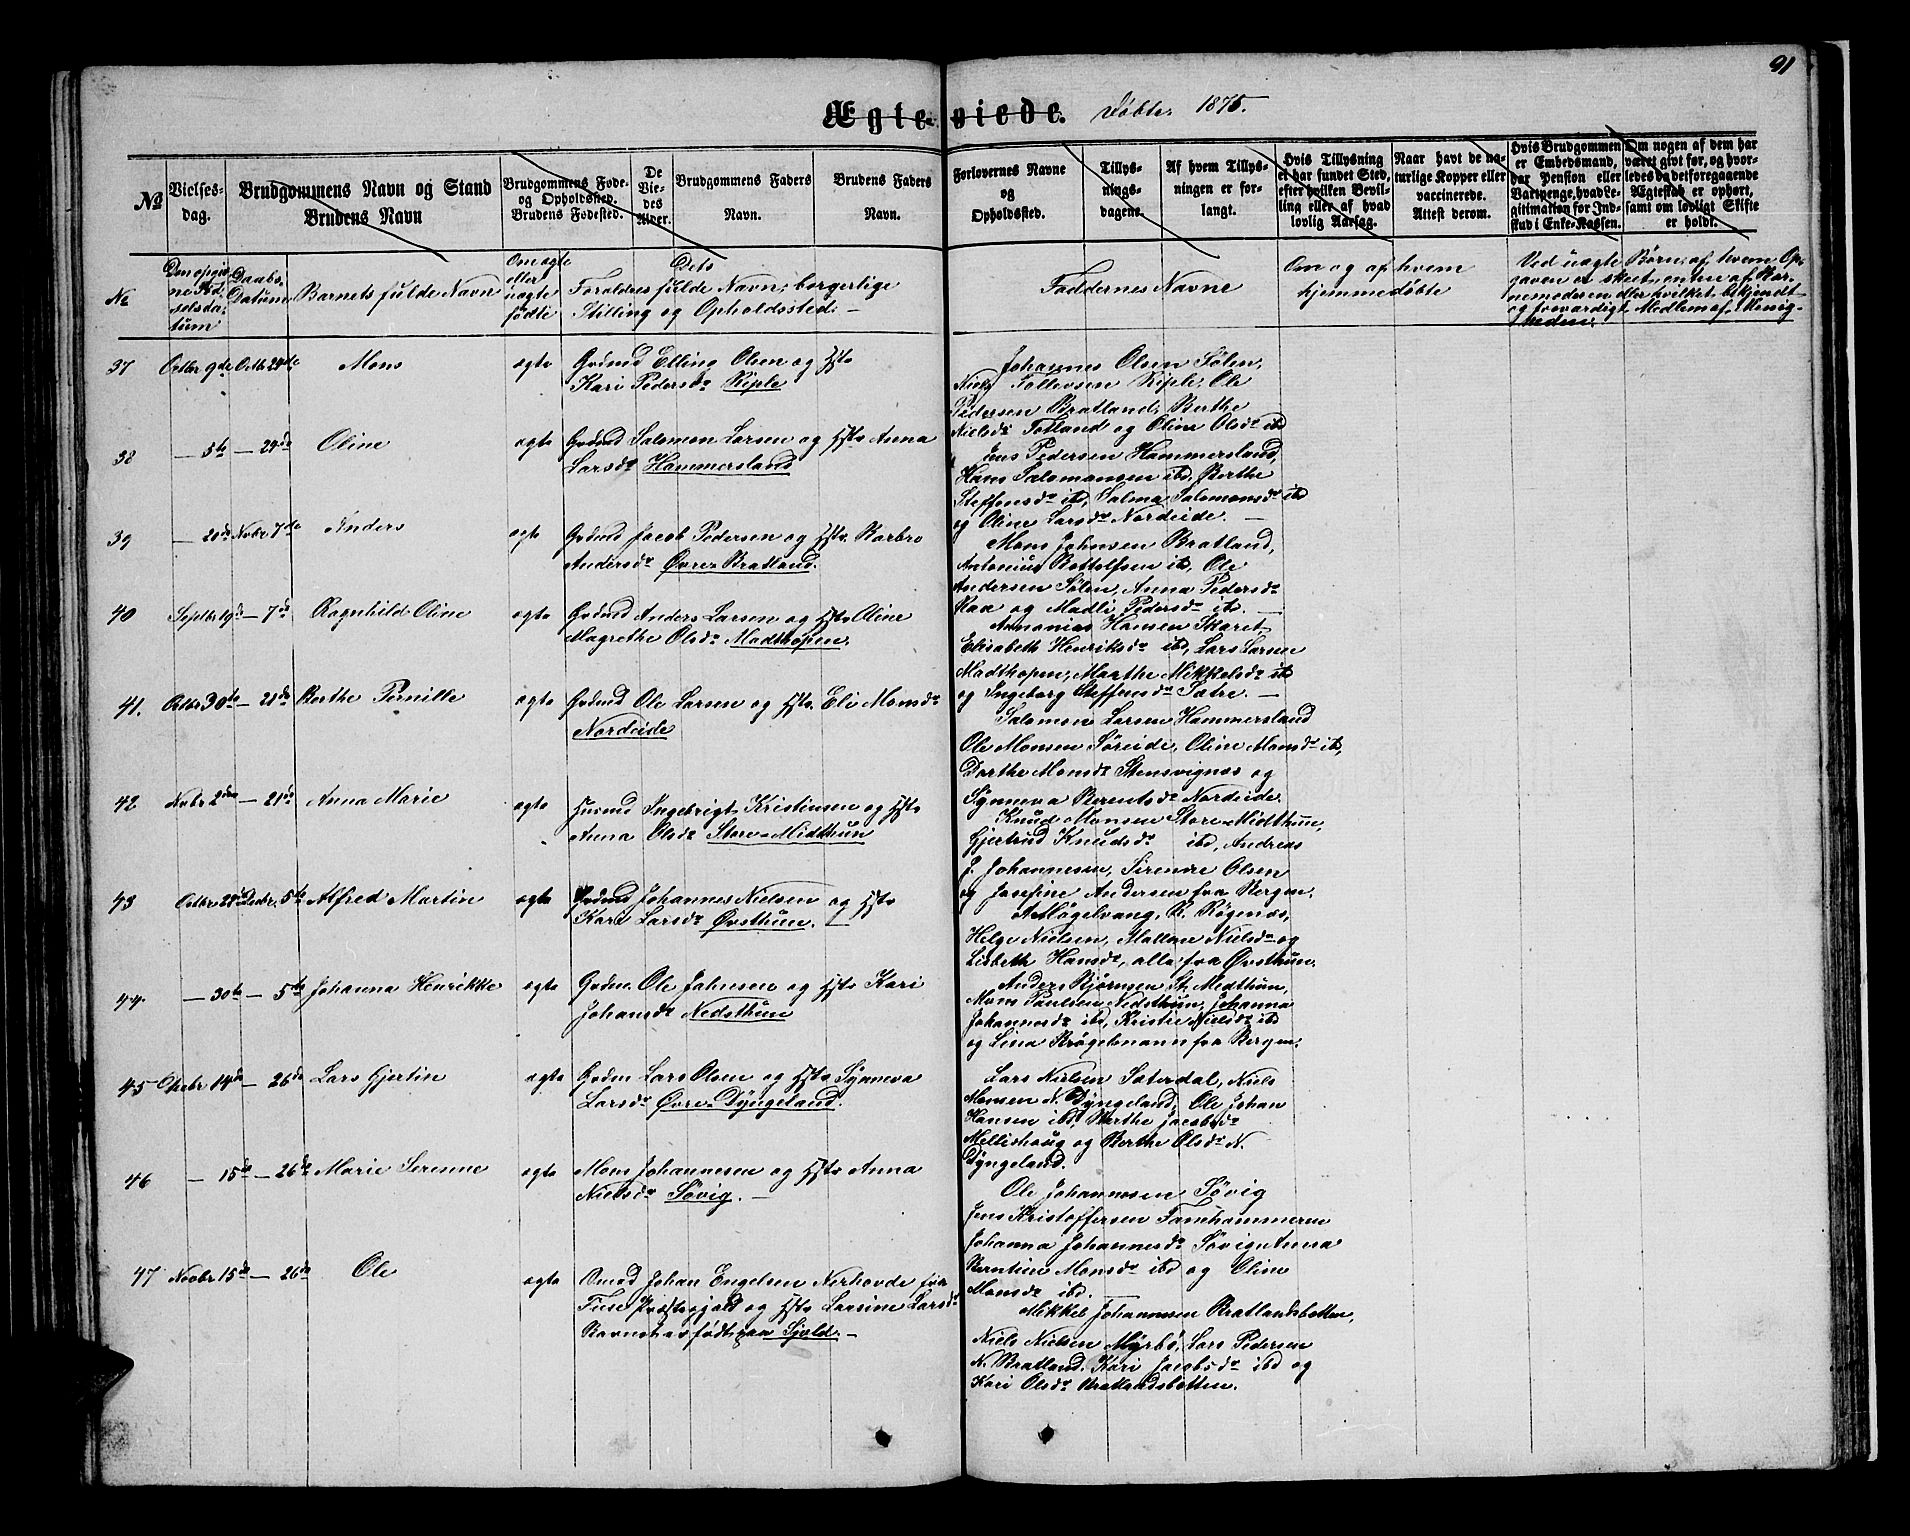 91
Ægteviede. Døbte. 1875.
No
Vielses-
dag.
Brudgommens Navn og Stand
Brudens Navn
Brudgommens Føde-
og Opholdssted.
Brudens Fødested.
De
Vie-
des
Alder.
Brudgommens Faders
Navn.
Brudens Faders
Navn.
Forlovernes Navne
og
Opholdssted.
Tillys-
nings-
dagene.
Af hvem Tillys-
ningen er for-
langt.
Hvis Tillysning
ei har fundet Sted,
efter hvilken Bevil-
ling eller af hvad
lovlig Aarsag.
Naar havt de na-
turlige Kopper eller
vaccinerede.
Attest derom.
Hvis Brudgommen
er Embedsmand,
har Pension eller
Vartpenge, hvad Le-
gitimation for Ind-
skud i Enke-Kassen.
Om nogen af dem har
været givt før, og hvor-
ledes da det foregaaende
Ægteskab er ophørt,
samt om lovligt Skifte
er holdt.
No
Den opgiv-
ne Fød-
selsda-
tum
Daabs-
Datum
Barnets fulde Navn
Om ægte
eller
uægte
fødte
Dets
Forældres fulde Navn, borgerlige
Stilling og Opholdssted. —
Faddernes Navne
Om og af hvem
hjemmedøbte
Ved uægte Børn, af hvem Op-
gaven er skeet, enten af Bar-
nemoderen eller hvilket bekjendt
og troværdigt Medlem af Menig-
heden.
37 Octbr 9de Octb 24de Mons ægte Grdmd Elling Olsen og Hstr
Kari Pedersdr Riple
Johannes Olsen Sølen,
Niels Tollevsen Riple, Ole
Pedersen Bratland, Berthe
Nielsdr Totland og Oline Olsdr ibd
38 — 5te — 24de Oline ægte Grdmd Salomon Larsen og Hstr Anna
Larsdr Hammersland
Jens Pedersen Hammersland,
Hans Salomonsen ibd, Berthe
Steffensdr ibd, Salma Salomonsdr ibd
og Oline Larsdr Nordeide. —
39 — 20de Novbr 7de Anders ægte Grdmd Jacob Pedersen og Hstr. Barbro
Andersdr Øvre-Bratland.
Mons Johnsen Bratland,
Antonius Rottolfsen ibd, Ole
Andersen Sølen, Anna Pedersdr
Kaa og Madli Pedersdr ibd. —
40 Septbr 19de — 7de Ragnhild Oline ægte Grdmd Anders Larsen og Hstr Oline
Magrethe Olsdr Madthopen.
Annanias Hansen Skaret
Elisabeth Henriksdr ibd, Lars Larsen
Madthopen, Marthe Mikkelsdr ibd
og Ingeborg Steffensdr Sætre. —
41. Octbr 30te — 21de Berthe Pernille ægte Grdmd Ole Larsen og Hstr. Eli Monsdr
Nordeide
Salomon Larsen Hammersland
Ole Monsen Søreide, Oline Monsdr ibd,
Dorthe Monsdr Stensvignes og
Synneva Berentsdr Nordeide.
42 Novbr 2den — 21de Anna Marie ægte Husmd Ingebrigt Kristensen og Hstr
Anna Olsdr Store-Midthun
Knud Monsen Store-Midthun,
Gjertrud Knudsdr ibd, Andreas
J. Johannesen, Sirenre Olsen
og Josefine Andersen fra Bergen.
43 Octbr 28de Decbr. 5te Alfred Martin ægte Grdmd Johannes Nielsen og Hstr
Kari Larsdr Øvsthun. —
A Møgelvang, R. Røgenæs,
Helge Nielsen, Mallene Nielsdr og
Lisbeth Hansdr, alle fra Øvsthun.
44. — 30te — 5te Johanna Henrikke ægte Grdm. Ole Johnsen og Hstr Kari
Johansdr Nedsthun
Anders Bjørnsen St. Medthun,
Mons Paulsen Nedsthun, Johanna
Johannesdr ibd, Kristie Nielsdr ibd
og Lina Brøgelmann fra Bergen.
45 Octbr 14de — 26de Lars Gjertin ægte Grdm Lars Olsen og Hstr Synneva
Larsdr Øvre-Dyngeland.
Lars Nielsen Sæterdal, Niels
Monsen N. Dyngeland, Ole Johan
Hansen ibd, Berthe Jacobsdr
Mellishoug og Berthe Olsdr N.
Dyngeland.
46 — 15de — 26de Marie Serenne ægte Mons Johannesen og Hstr Anna
Nielsdr Søvig. —
Ole Johannesen Søvig
Jens Kristoffersen Tamhammeren
Johanna Johannesdr Søvig, Anna
Berntine Monsdr ibd og Oline
Monsdr ibd. —
47 Novbr 15de — 26de Ole ægte Johan Engelsen Nerhovde fra
Fuse Præstegjeld og Hstr Larsine Larsdr
Barnet er født paa Sjold. —
Mikkel Johannesen Bratlandsbotten,
Niels Nielsen Myrbø, Lars Pedersen
N. Bratland, Kari Jacobsdr ibd og
Kari Olsdr Bratlandsbotten.